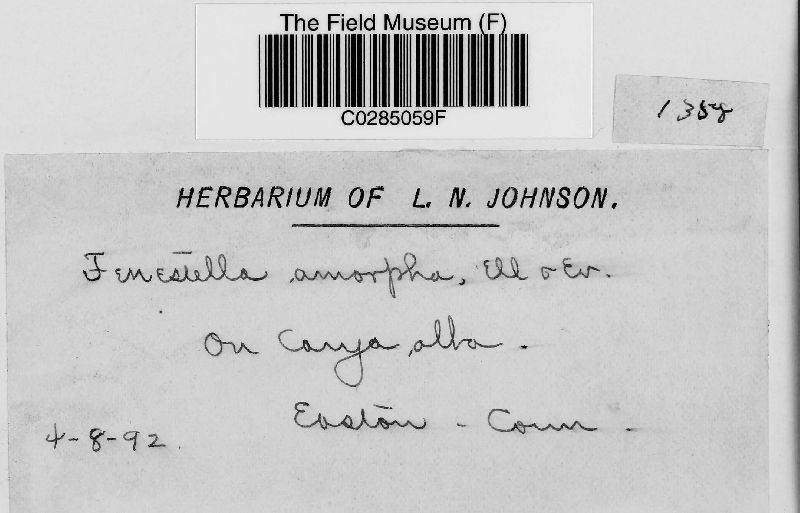 The Field Museum (F)
C0285059F
1358
HERBARIUM OF L. N. JOHNSON.
Fenestella amorpha, Ell & Ev.
On Carya alba.
Easton - Conn -
4-8-92.